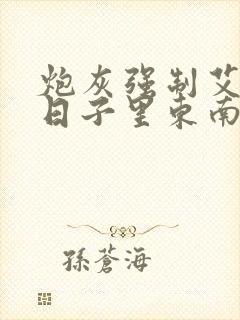 炮灰强制艾
日子里东南
孫蒼海